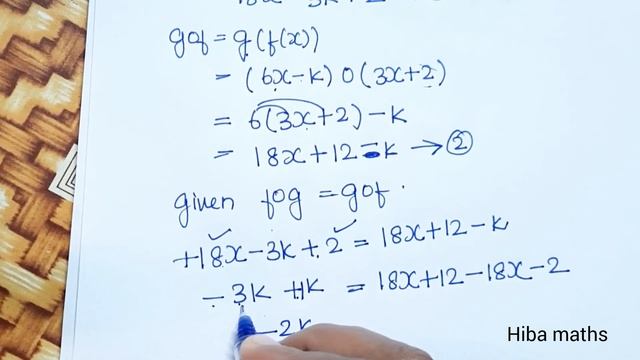 gof = g(f(x))
= (6x-k) o (3x+2)
= 6(3x+2)-k
= 18x+12-k → ②
given fog = gof.
+18x-3k+2 = 18x+12-k
-3k +1k = 18x+12-18x-2
-2k
Hiba maths